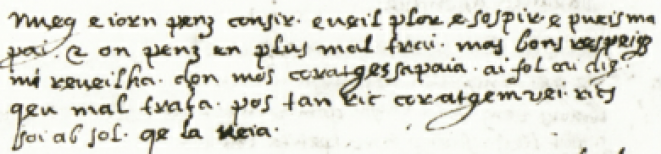 nueg e iorn penz consir. e ueil plor e sospir. e pueis ma
pai. e on penz en plus mal trai. mas bons respeigz
mi reueilha. don mos coratges sapaia. ai fol cu dig
qeu mal traga. pos tan ric coratgem uei. rics
soi ab sol. qe la ueia.